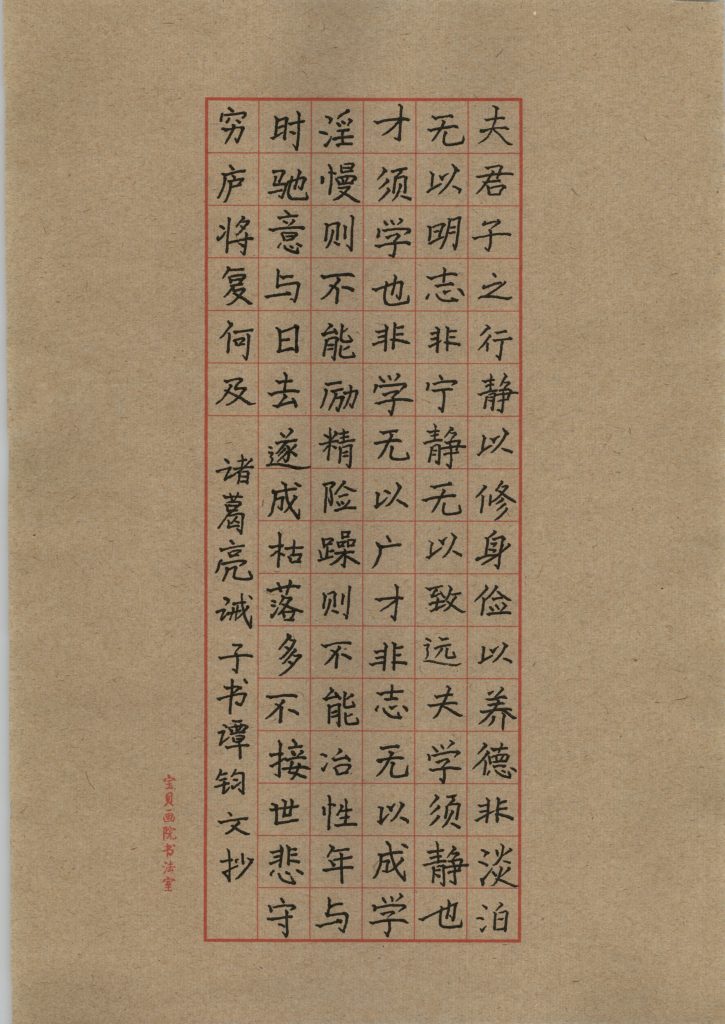 夫君子之行静以修身俭以养德非淡泊
无以明志非宁静无以致远夫学须静也
才须学也非学无以广才非志无以成学
淫慢则不能励精险躁则不能冶性年与
时驰意与日去遂成枯落多不接世悲守
穷庐将复何及
诸葛亮诫子书谭钧文抄
宝贝画院书法室